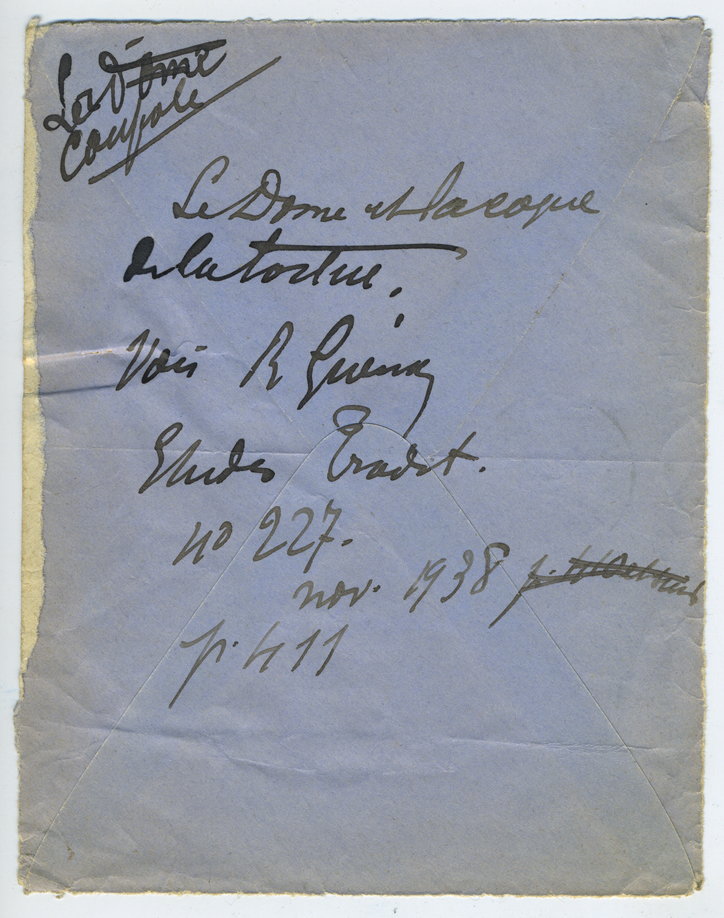 Le Dôme
Coupole
Le Dome et la coque
de la tortue.
Voir R Guénon
Etudes Tradit.
no 227.
nov. 1938 p.
p. 411